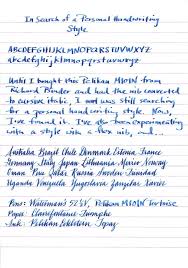 In Search of a Personal Handwriting
Style
ABCDEFGHIJKLMNOPQRSTUVWXYZ
abcdefghijklmnopqrstuvwxyz
Until I bought this Pelikan M101N from
Richard Binder and had the nib converted
to cursive italic, I was still searching
for a personal handwriting style. Now,
I've found it. I've also been experimenting
with a style with a flex nib, and..
Australia Brazil Chile Denmark Estonia France
Germany Italy Japan Lithuania Mexico Norway
Oman Peru Qatar Russia Sweden Trinidad
Uganda Venezuela Yugoslavia
Pens: Waterman's 52½V, Pelikan M101N Tortoise
Paper: Clairefontaine Triomphe
Ink: Pelikan Edelstein Topaz